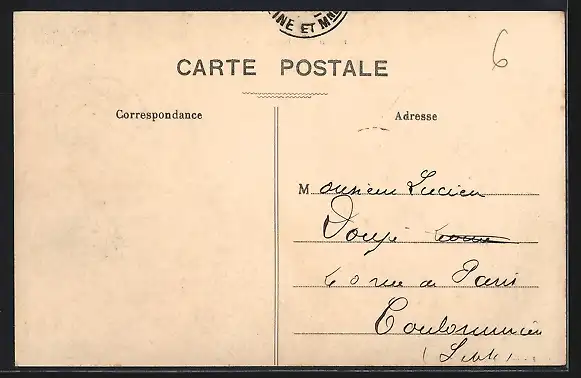 INE ET MNE
6
CARTE POSTALE
Correspondance
Adresse
Monsieur Lucien
rue de Paris
Coulommiers